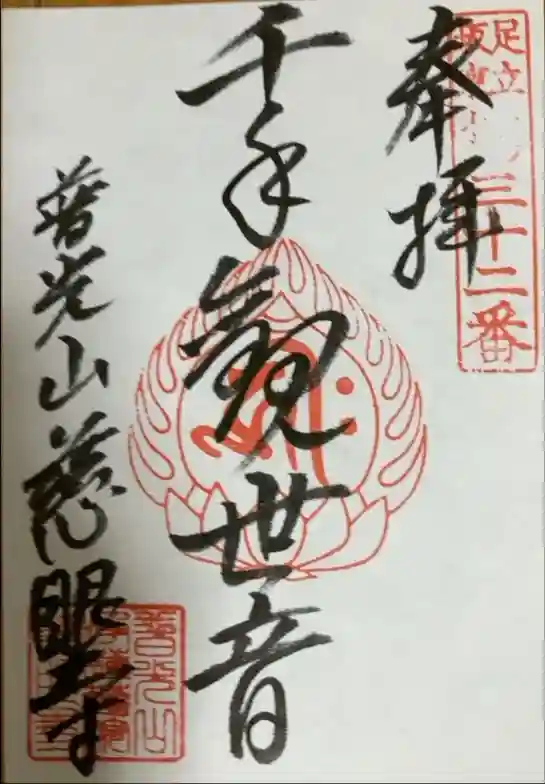 奉拝
足立
坂東
三十二番
千手観世音
普光山慈眼寺
普光山